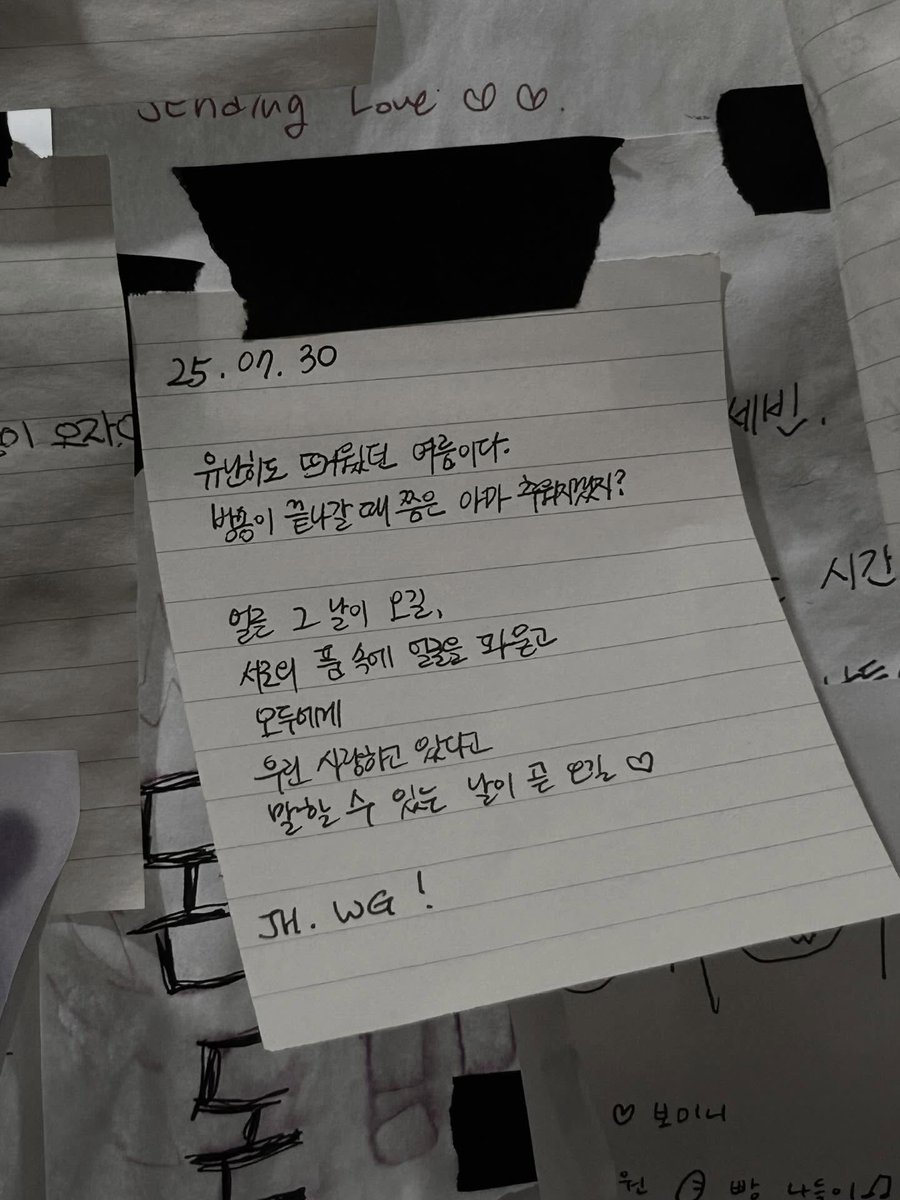 Sending Love ♡ ♡.
25.07.30
이 오자♡
세빈.
유난히도 뜨거웠던 여름이다.
방송이 끝나갈 때 쯤은 아마 추워지겠지?
시간
얼른 그 날이 오길,
서로의 품 속에 얼굴을 파묻고
모두에게
우린 사랑하고 있다고
말할 수 있는 날이 곧 오길 ♡
JH. WG!
♡ 보미니
원 빵 나들이